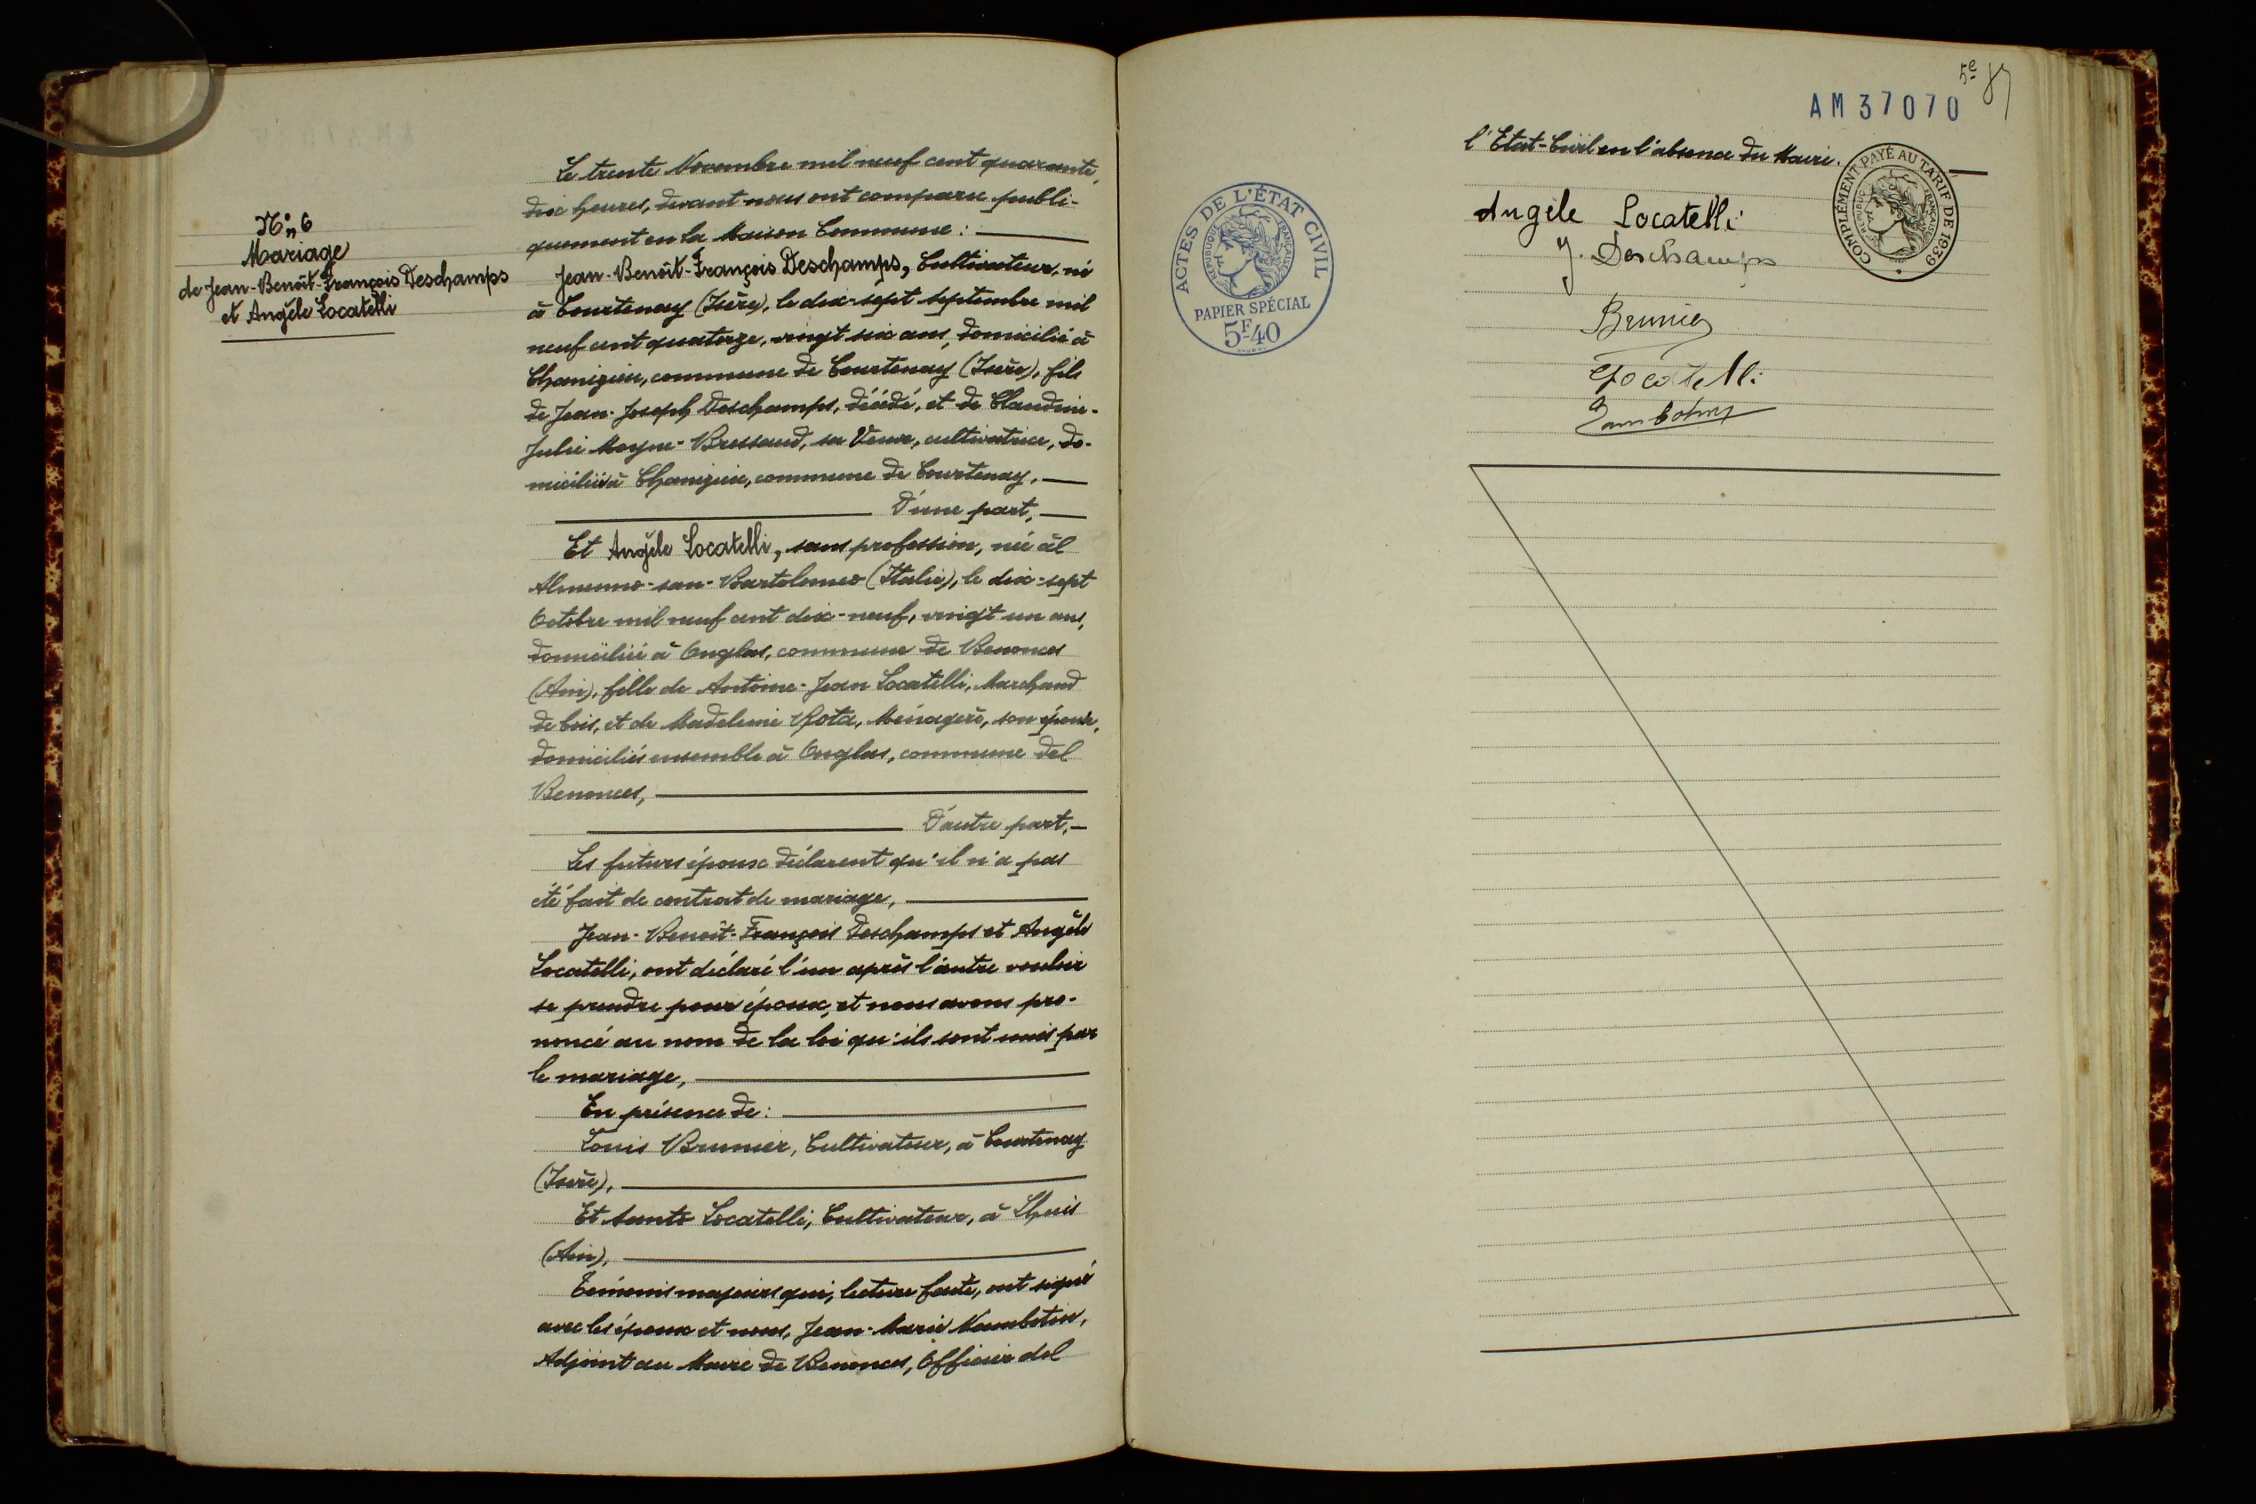 N° 6
Mariage
de Jean-Benoît-François Deschamps
et Angèle Locatelli
Le trente Novembre mil neuf cent quarante,
dix heures, devant nous ont comparu publi-
quement en la Maison Commune :
Jean-Benoît-François Deschamps, Cultivateur, né
à Courtenay (Isère), le dix-sept septembre mil
neuf cent quatorze, vingt six ans, domicilié à
Chanizieu, commune de Courtenay (Isère), fils
de Jean-Joseph Deschamps, décédé, et de Claudine-
Julie Moyne-Bressand, sa Veuve, cultivatrice, do-
miciliée à Chanizieu, commune de Courtenay,
D'une part,
Et Angèle Locatelli, sans profession, née à
Almenno-san-Bartolomeo (Italie), le dix-sept
Octobre mil neuf cent dix-neuf, vingt un ans,
domiciliée à Onglas, commune de Benonces
(Ain), fille de Antoine-Jean Locatelli, Marchand
de bois, et de Madeleine Rota, Ménagère, son épouse,
domiciliés ensemble à Onglas, commune de
Benonces,
D'autre part,
Les futurs époux déclarent qu'il n'a pas
été fait de contrat de mariage,
Jean-Benoît-François Deschamps et Angèle
Locatelli, ont déclaré l'un après l'autre vouloir
se prendre pour époux, et nous avons pro-
noncé au nom de la loi qu'ils sont unis par
le mariage,
En présence de :
Louis Brunier, Cultivateur, à Courtenay
(Isère),
Et Santo Locatelli, Cultivateur, à Lhuis
(Ain),
Témoins majeurs qui, lecture faite, ont signé
avec les époux et nous, Jean-Marie Nambotin,
Adjoint au Maire de Benonces, Officier de
ACTES DE L'ÉTAT CIVIL
RÉPUBLIQUE FRANÇAISE
PAPIER SPÉCIAL
5F.40
5e
AM 37070
l'Etat-Civil en l'absence du Maire.
COMPLÉMENT PAYÉ AU TARIF DE 1939
RÉPUBLIQUE FRANÇAISE
Angèle Locatelli
J. Deschamps
Brunier
Locatelli